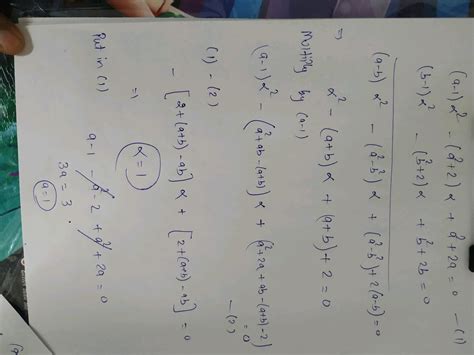 (a-1)α² - (a²+2)α + a²+2a = 0 —(1)
(b-1)α² - (b²+2)α + b²+2b = 0
(a-b)α² - (a²-b²)α + (a²-b²)+2(a-b) = 0
⇒ α² - (a+b)α + (a+b)+2 = 0
Multiply by (a-1)
(a-1)α² - (a²+ab-(a+b))α + (a²+2a+ab-(a+b)-2) = 0 —(2)
(1) - (2)
- [2+(a+b)-ab]α + [2+(a+b)-ab] = 0
⇒ α=1
Put in (1)
a-1 - a² - 2 + a² + 2a = 0
3a = 3
a=1